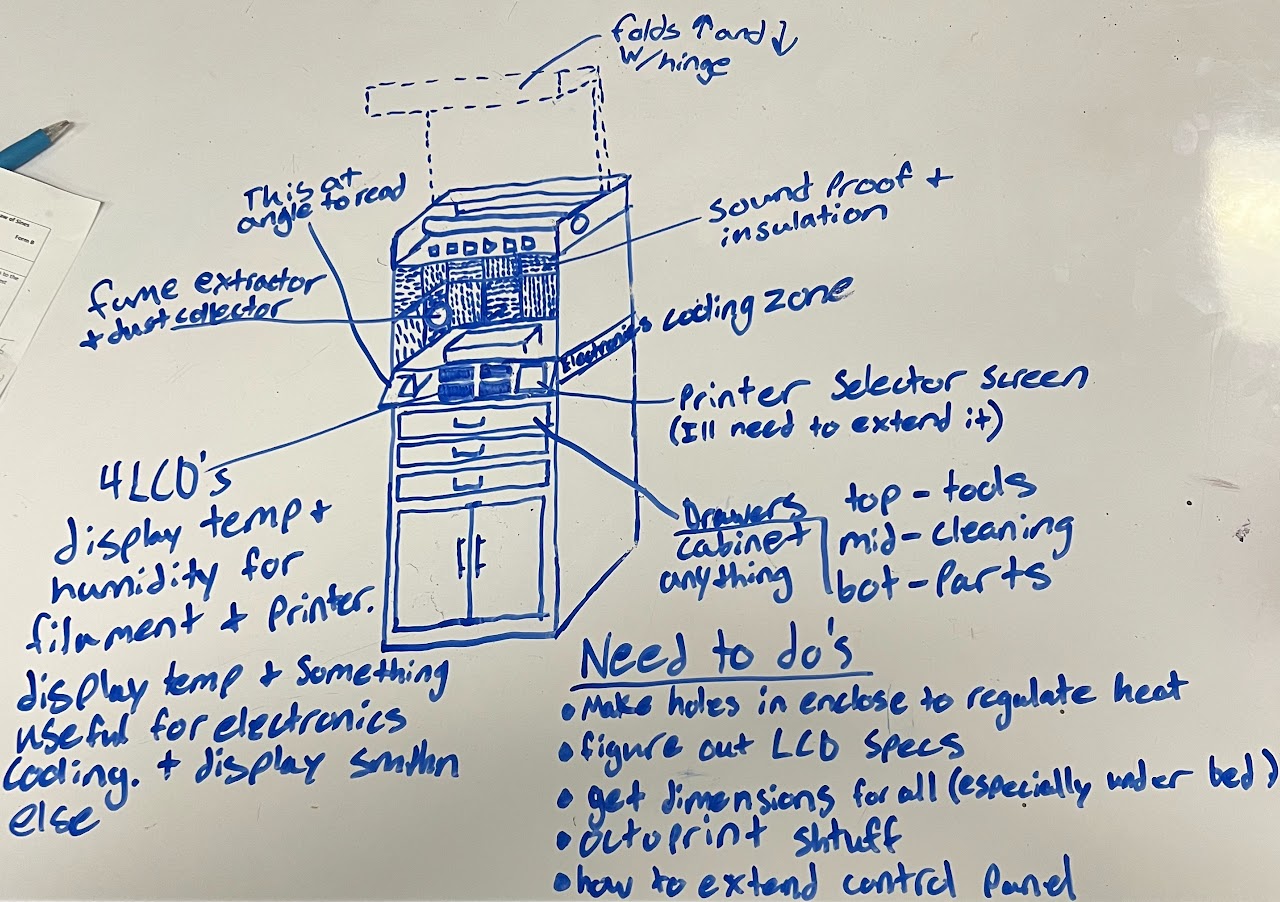 folds ↑ and ↓
w/hinge
This at
angle to read
sound proof +
insulation
fume extractor
+ dust collector
Electronics cooling zone
Printer Selector Screen
(Ill need to extend it)
4 LCD's
display temp +
humidity for
filament + printer.
display temp + something
useful for electronics
cooling. + display smthn
else
Drawers
cabinet
anything
top - tools
mid - cleaning
bot - Parts
Need to do's
• Make holes in enclose to regulate heat
• figure out LCD specs
• get dimensions for all (especially under bed)
• octoprint shtuff
• how to extend control panel
Form B